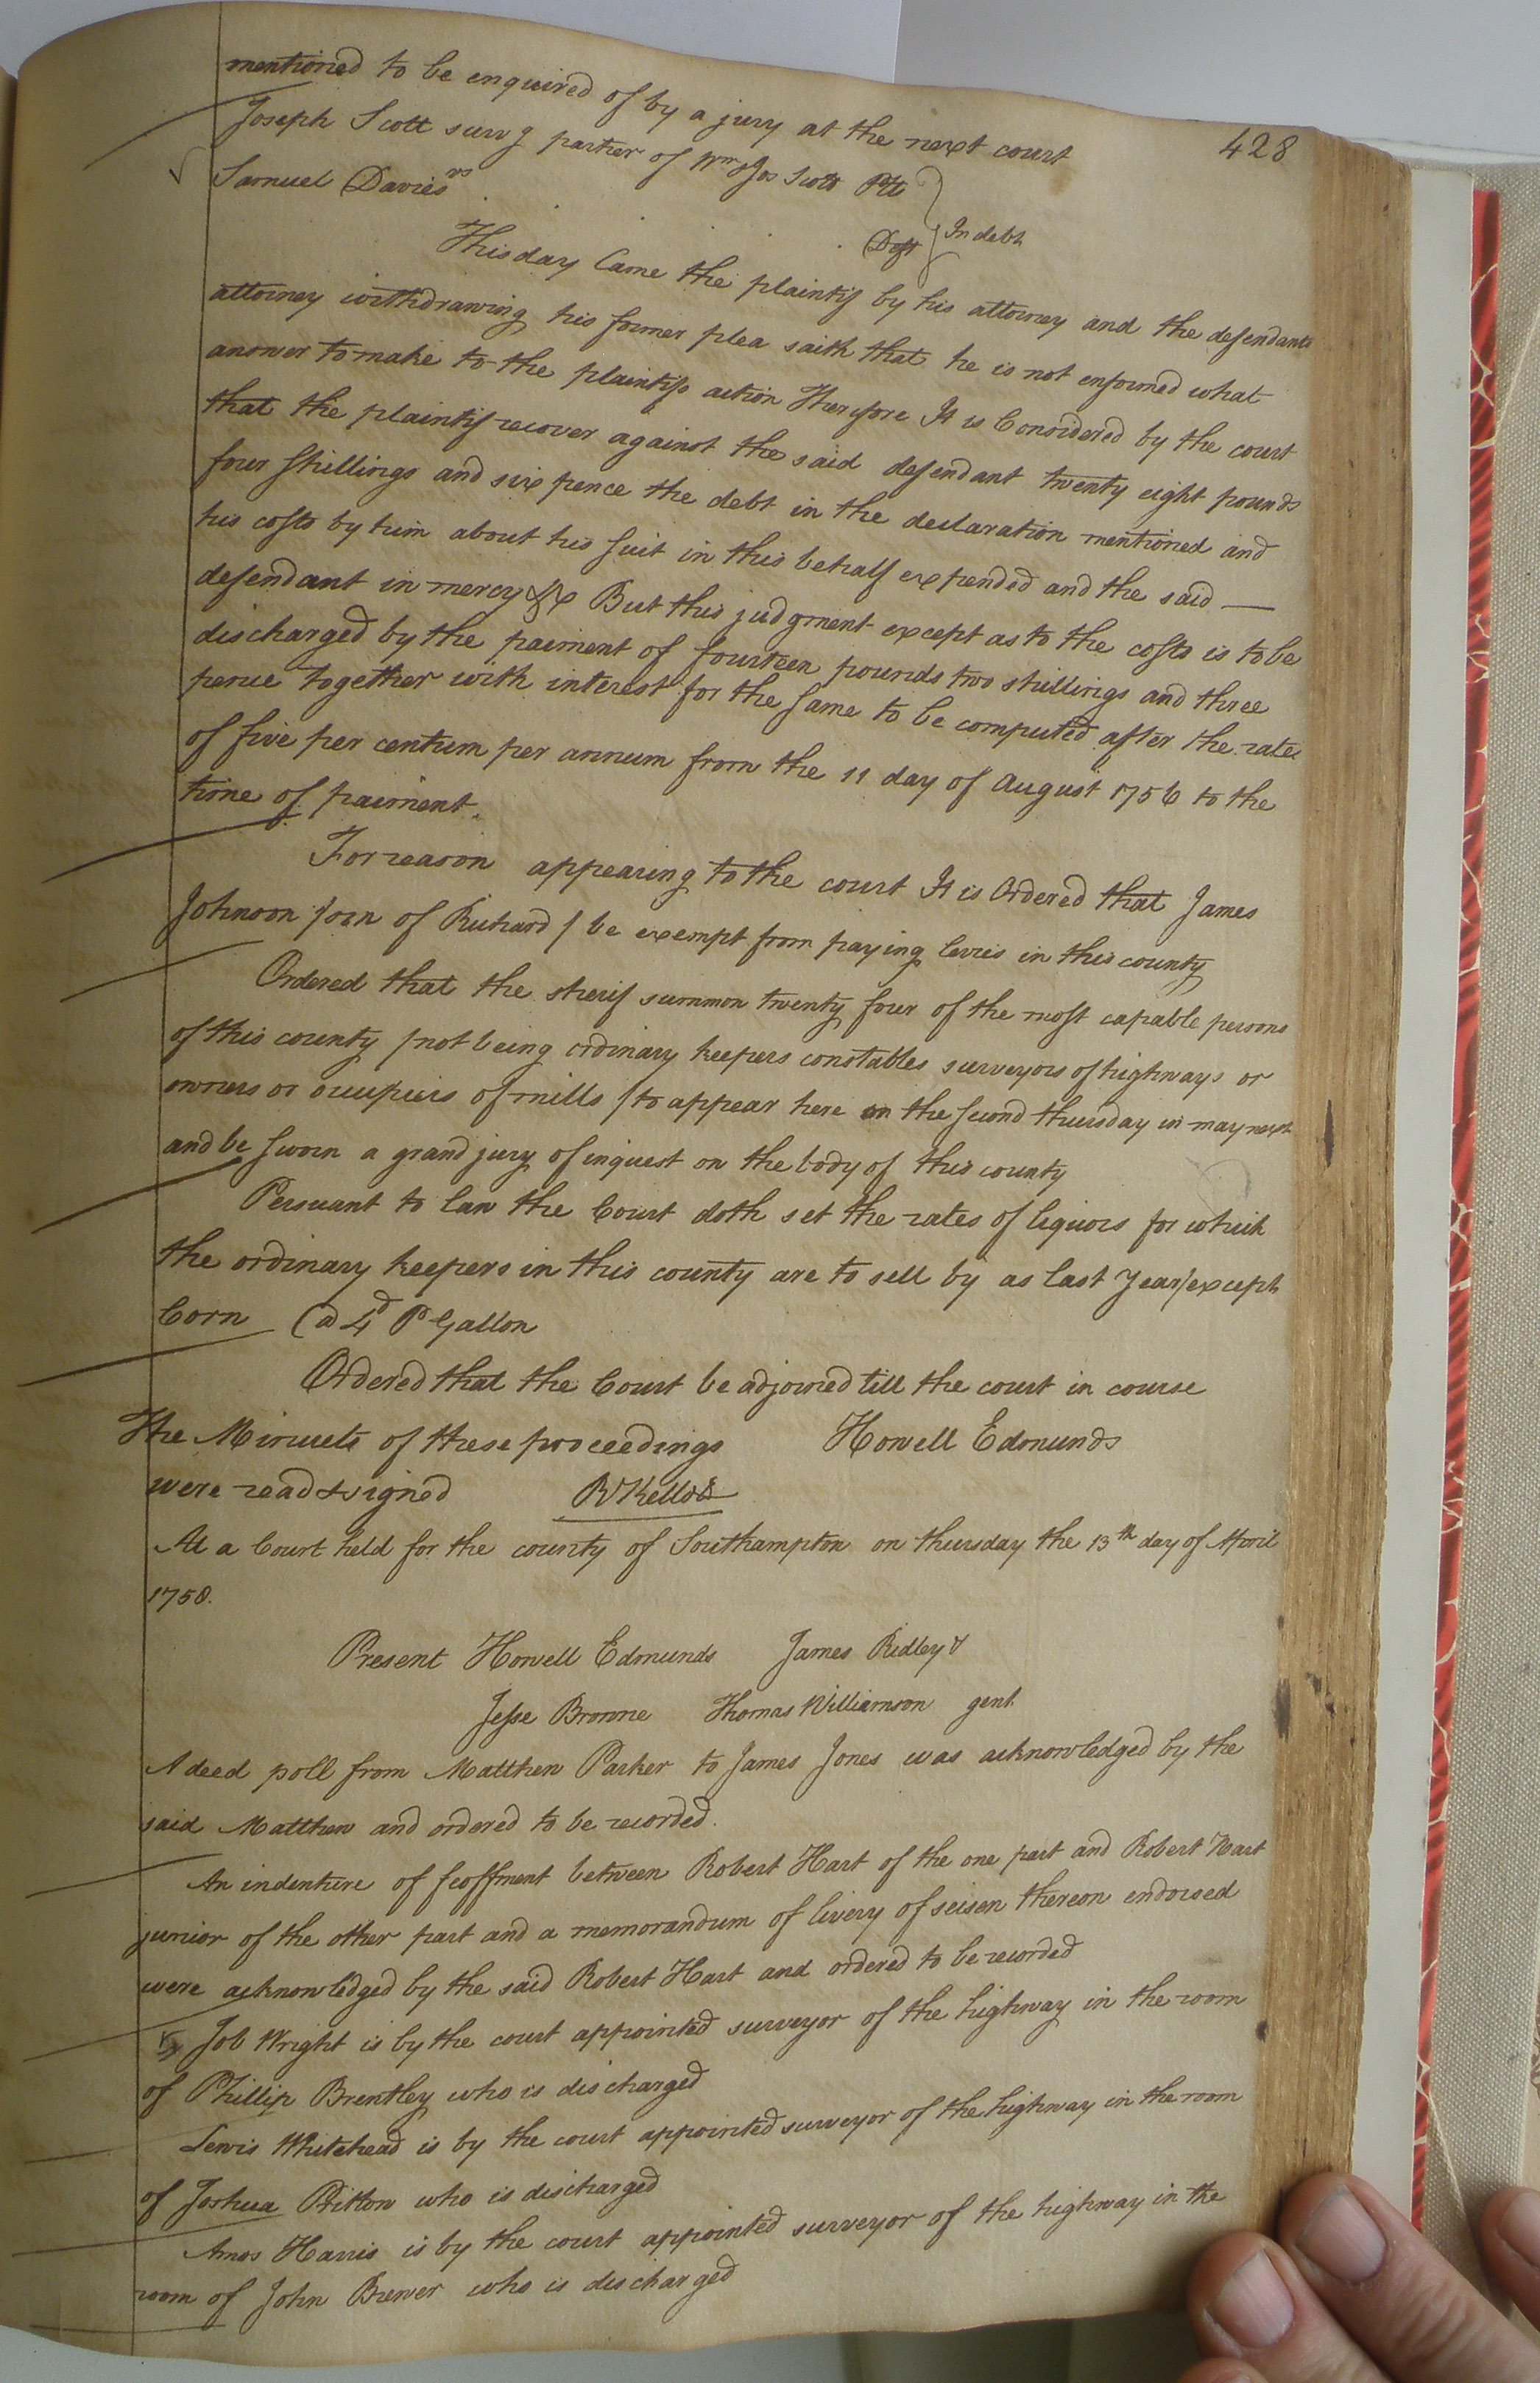 428
mentioned to be enquired of by a jury at the next court
Joseph Scott surv g partner of Wm & Jos Scott Plt
vs
In debt
Samuel Davies Deft
This day Came the plaintif by his attorney and the defendants
attorney withdrawing his former plea saith that he is not enformed what
answer to make to the plaintifs action Therefore It is Considered by the court
that the plaintif recover against the said defendant twenty eight pounds
four shillings and six pence the debt in the declaration mentioned and
his costs by him about his suit in this behalf expended and the said
defendant in mercy &c But this judgment except as to the costs is to be
discharged by the paiment of fourteen pounds two shillings and three
pence together with interest for the same to be computed after the rate
of five per centum per annum from the 11 day of August 1756 to the
time of paiment.
For reason appearing to the court It is Ordered that James
Johnson /son of Richard/ be exempt from paying levies in this county
Ordered that the sherif summon twenty four of the most capable persons
of this county /not being ordinary keepers constables surveyors of highways or
owners or occupiers of mills /to appear here on the second thursday in may next
and be sworn a grand jury of inquest on the body of this county
Persuant to law the Court doth set the rates of liquors for which
the ordinary keepers in this county are to sell by as last year/except
Corn @ 4d P Gallon
Ordered that the Court be adjorned till the court in course
The Minuets of these proceedings Howell Edmunds
were read & signed R Kello
At a Court held for the county of Southampton on thursday the 13th day of April
1758.
Present Howell Edmunds James Ridley &
Jesse Browne Thomas Williamson gent
A deed poll from Matthew Parker to James Jones was acknowledged by the
said Matthew and ordered to be recorded.
An indenture of feoffment between Robert Hart of the one part and Robert Hart
junior of the other part and a memorandum of livery of seisen thereon endorsed
were acknowledged by the said Robert Hart and ordered to be recorded
Job Wright is by the court appointed surveyor of the highway in the room
of Phillip Brentley who is discharged
Lewis Whitehead is by the court appointed surveyor of the highway in the room
of Joshua Britton who is discharged
Amos Harris is by the court appointed surveyor of the highway in the
room of John Brewer who is discharged